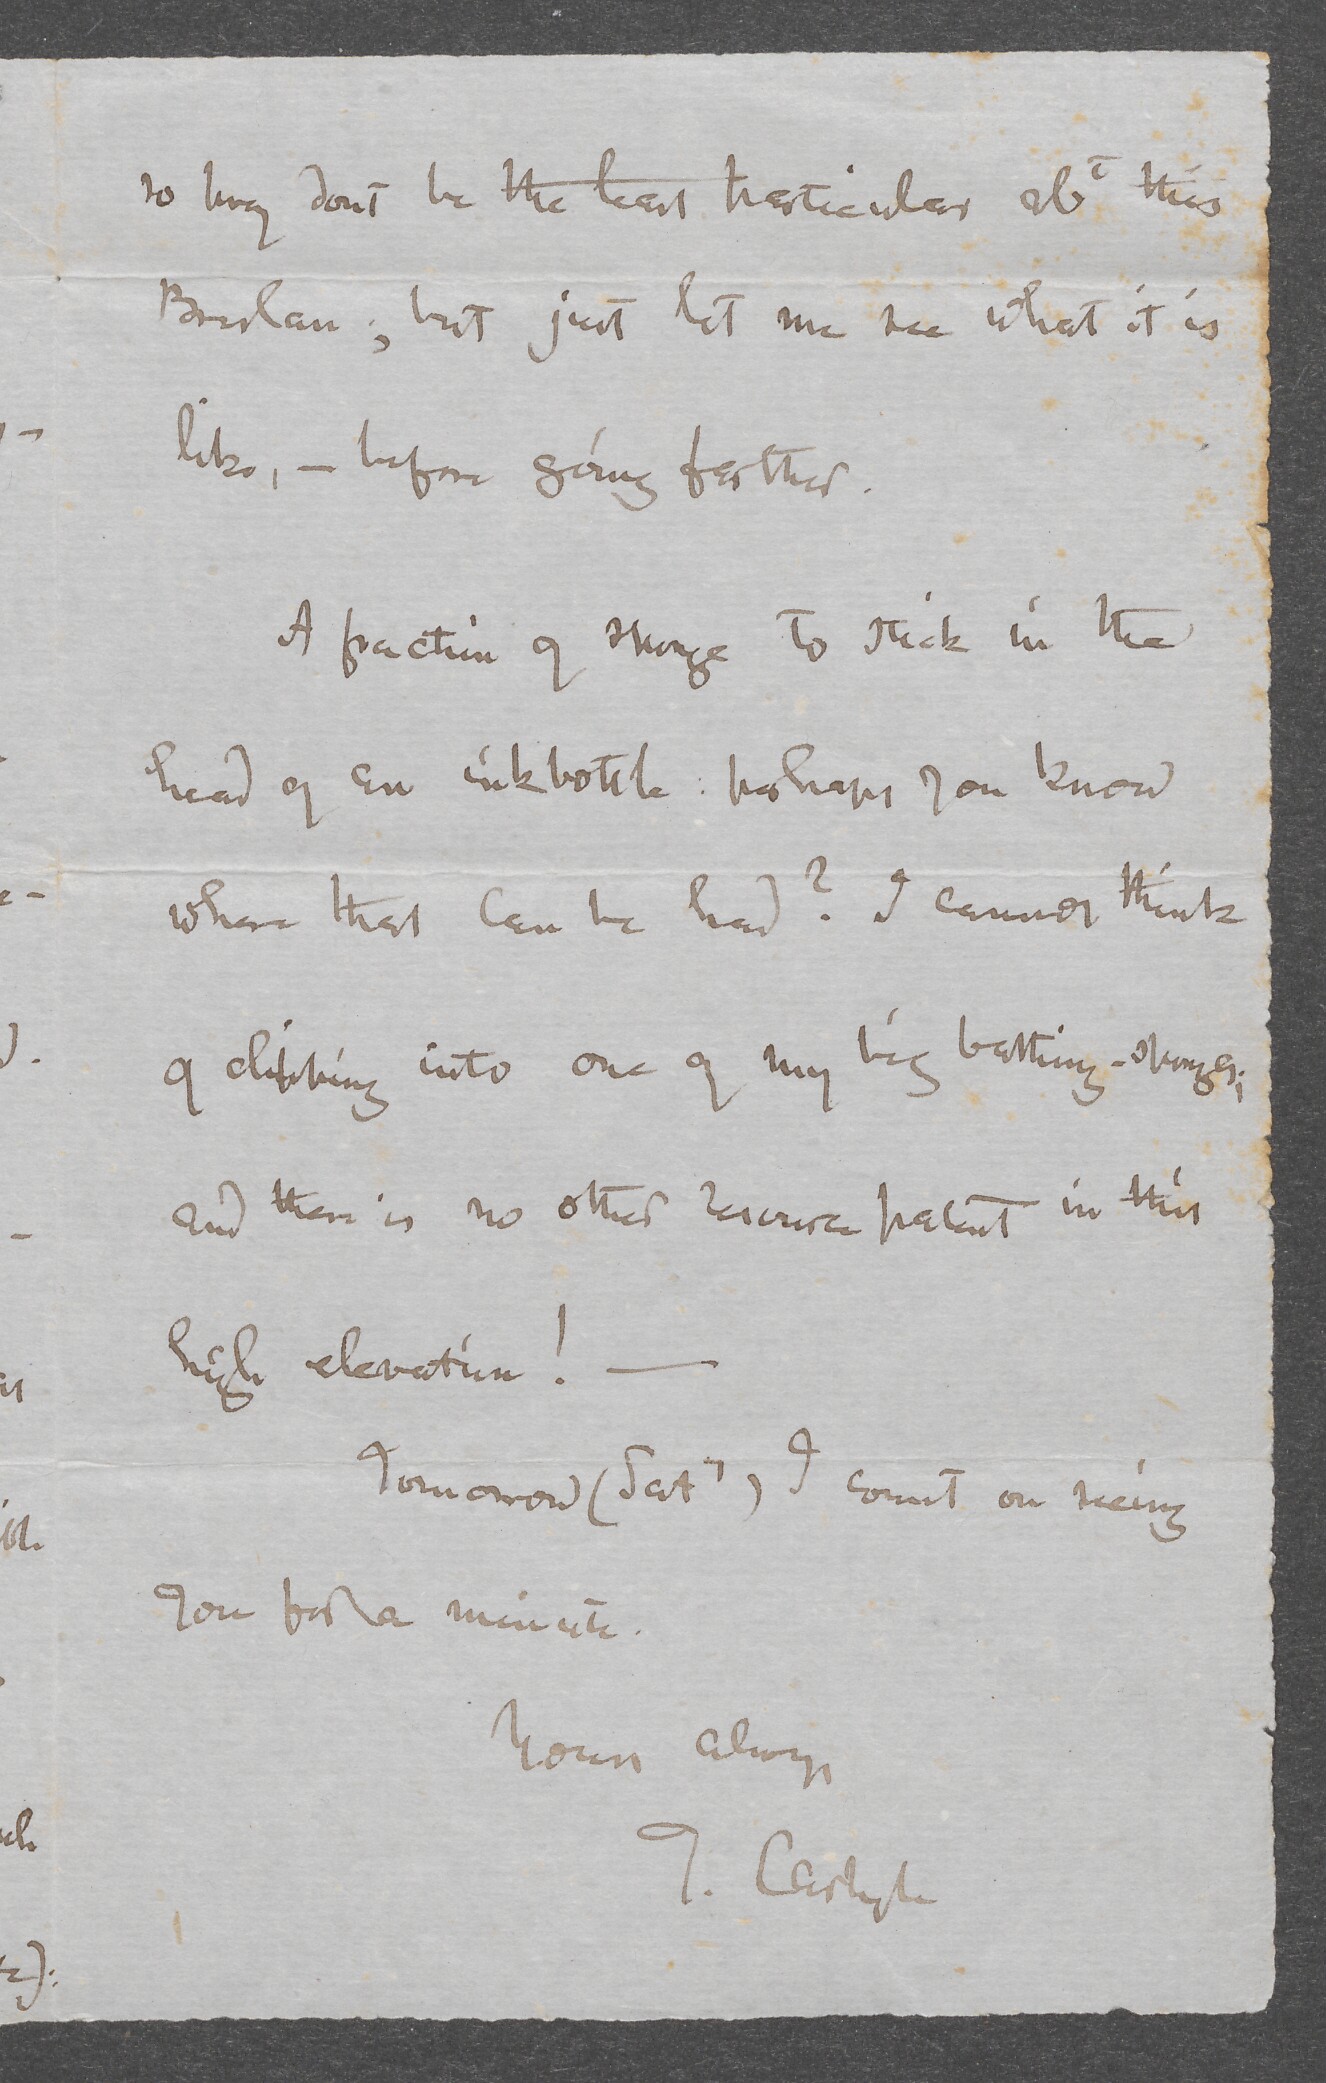 so pray dont be the least particular abt this
Breslau; but just let me see what it is
like, — before going farther.
A fraction of sponge to stick in the
head of an inkbottle: perhaps you know
where that can be had? I cannot think
of clipping into one of my big bathing-sponges;
and there is no other resource patent in this
high elevation! —
Tomorrow (Saty) I count on seeing
you for a minute.
Yours always
T. Carlyle